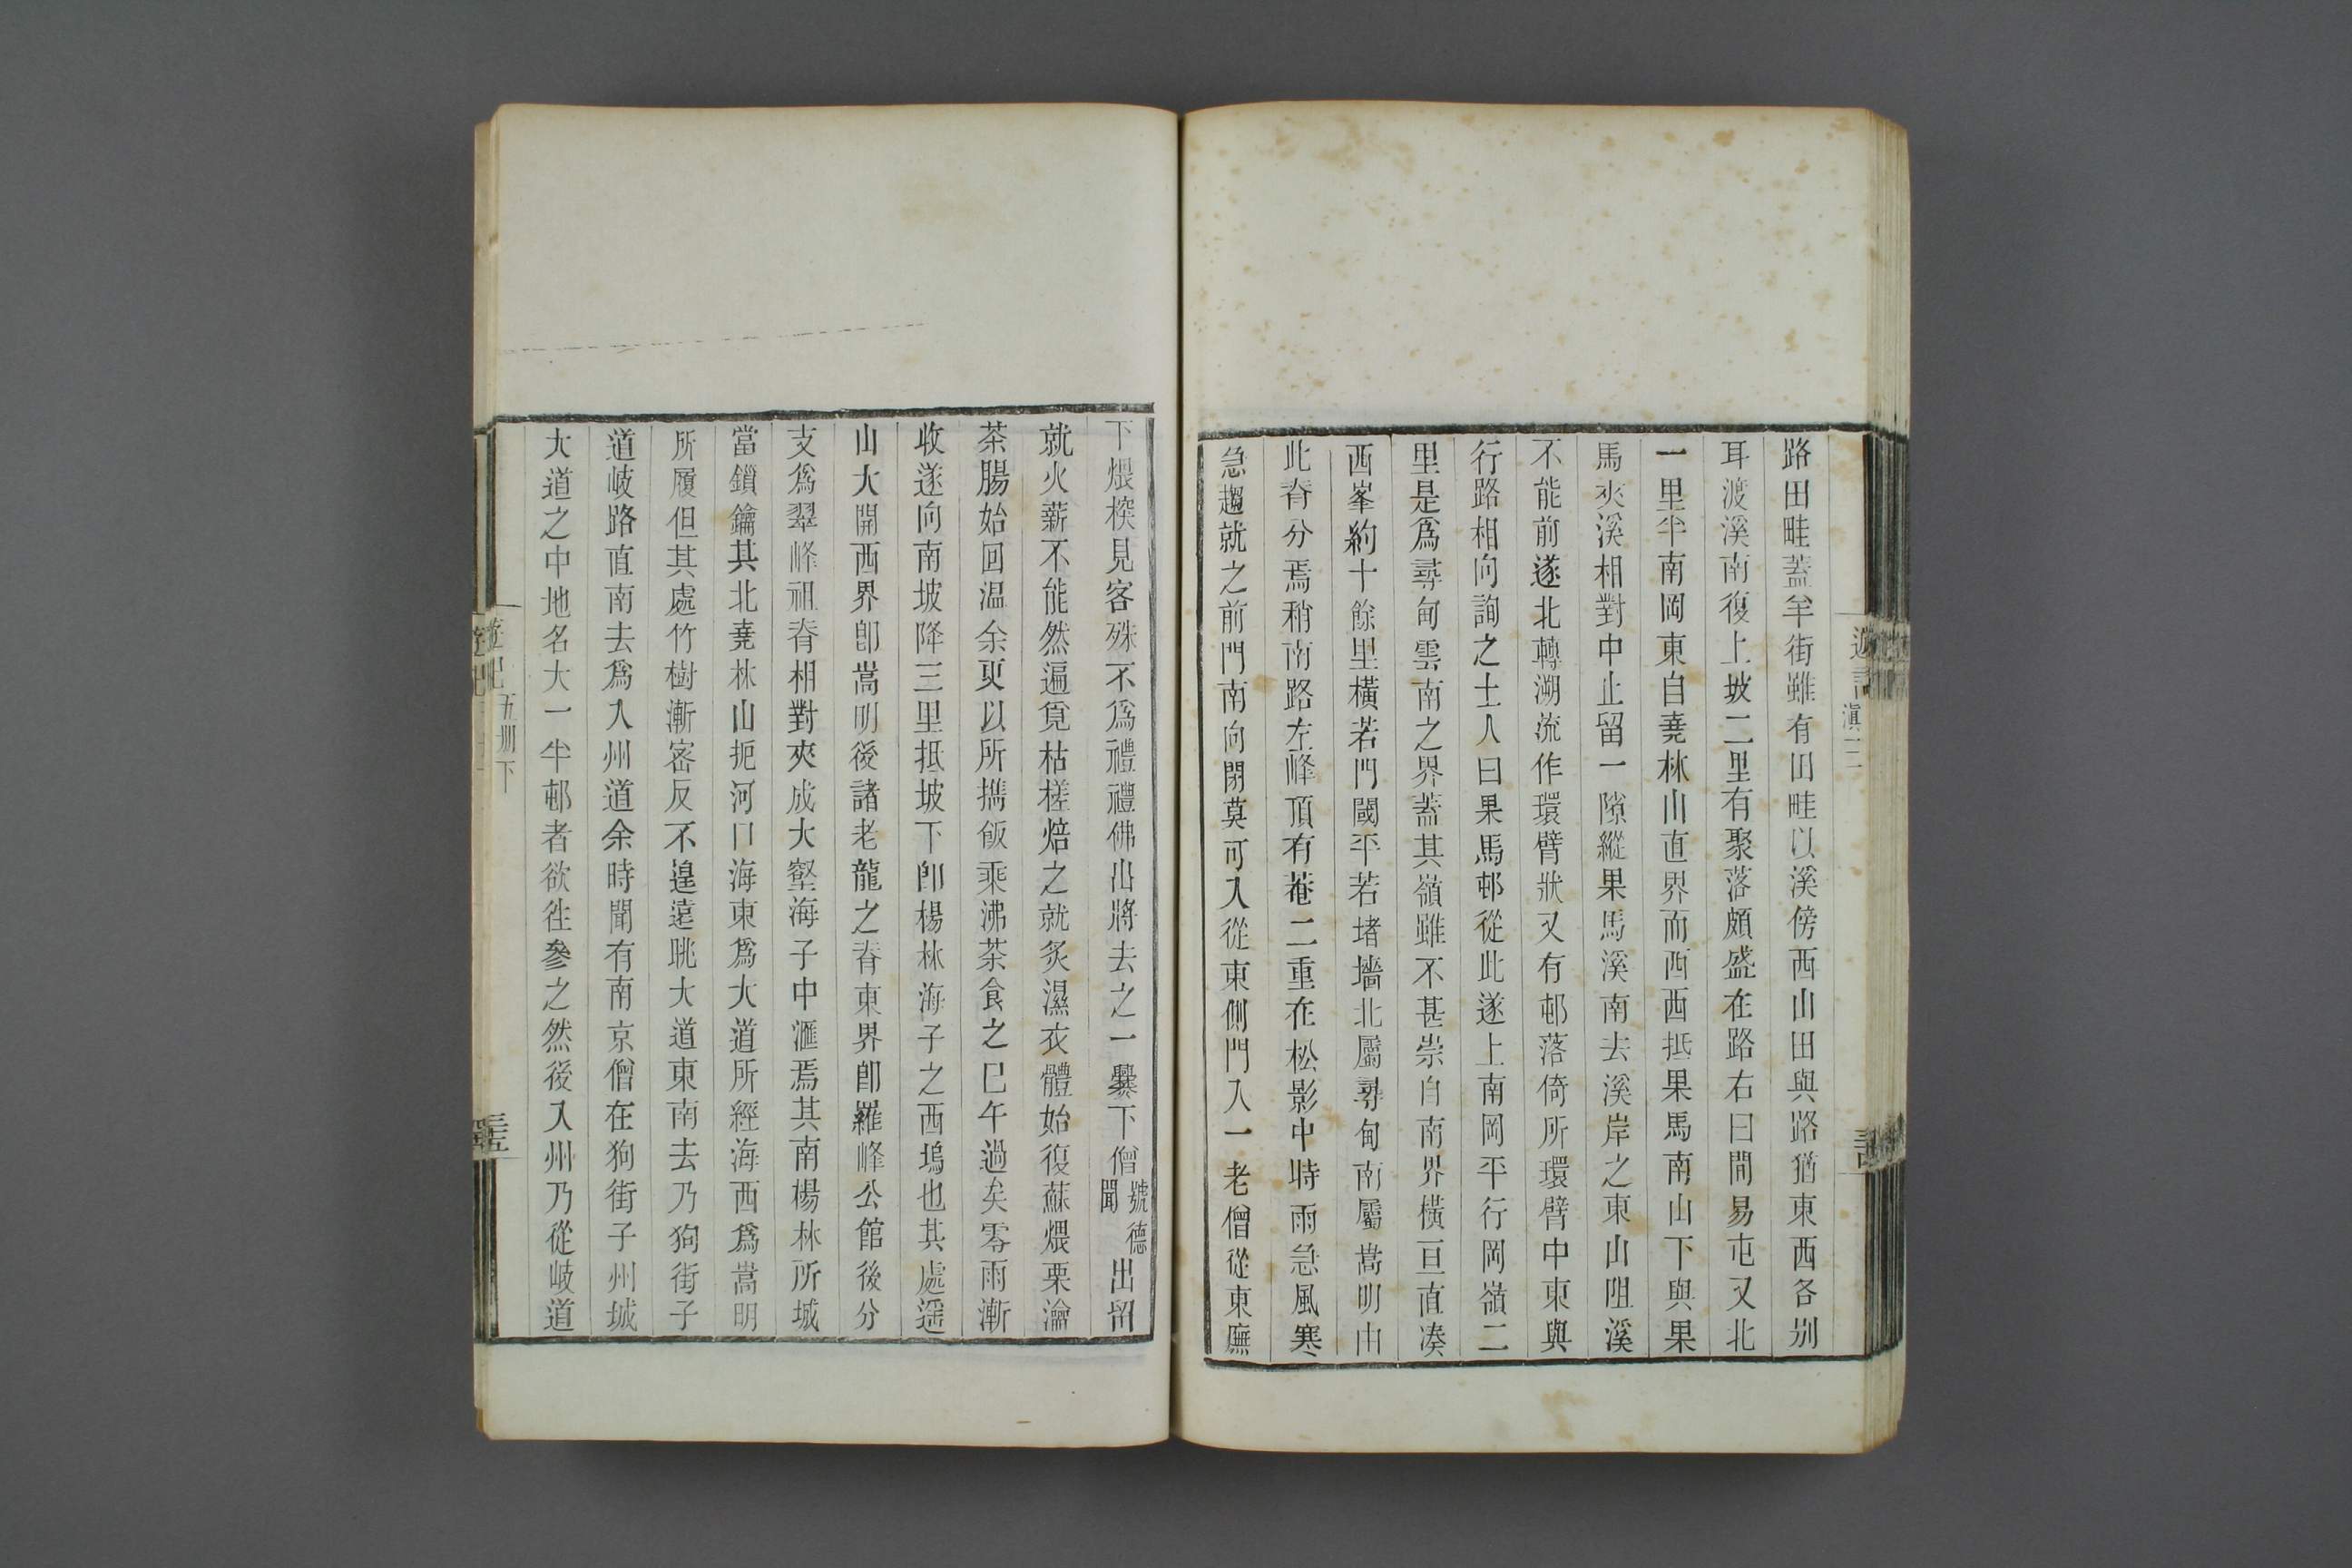 路田畦蓋羊街雖有田畦以溪傍西山田與路猶東西各别
耳渡溪南復上坡二里有聚落頗盛在路右曰間易屯又北
一里半南岡東自堯林山直界而西西抵果馬南山下與果
馬夾溪相對中止留一隙縱果馬溪南去溪岸之東山阻溪
不能前遂北轉溯流作環臂狀又有邨落倚所環臂中東與
行路相向詢之土人曰果馬邨從此遂上南岡平行岡嶺二
里是爲尋甸雲南之界蓋其嶺雖不甚崇自南界横亘直凑
西峯約十餘里横若門閾平若堵墻北屬尋甸南屬嵩明由
此脊分焉稍南路左峰頂有菴二重在松影中時雨急風寒
急趨就之前門南向閉莫可入從東側門入一老僧從東廡
下煨榾見客殊不爲禮禮佛出將去之一爨下僧號德聞出留
就火薪不能然遍覓枯槎焙之就炙濕衣體始復蘇煨栗瀹
茶腸始回温余更以所携飯乘沸茶食之已午過矣零雨漸
收遂向南坡降三里抵坡下卽楊林海子之西塢也其處遥
山大開西界卽嵩明後諸老龍之脊東界卽羅峰公館後分
支爲翠峰祖脊相對夾成大壑海子中滙焉其南楊林所城
當鎖鑰其北堯林山扼河口海東爲大道所經海西爲嵩明
所履但其處竹樹漸密反不遑遠眺大道東南去乃狗街子
道岐路直南去爲入州道余時聞有南京僧在狗街子州城
大道之中地名大一半邨者欲徃參之然後入州乃從岐道
遊記
滇三
遊記
五册下